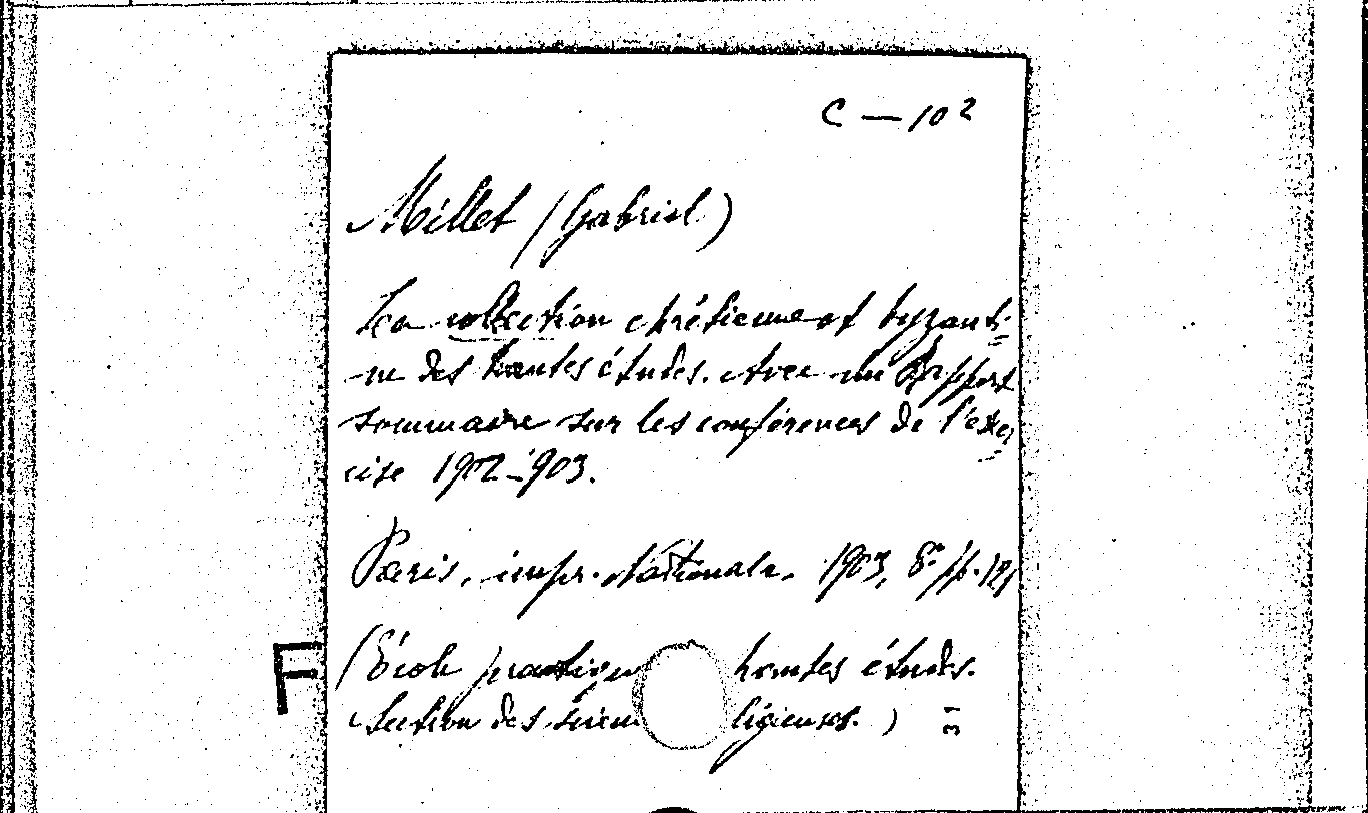 C — 10 2
Millet (Gabriel)
La collection chrétienne et byzanti-
ne des hautes études. Avec un Rapport
sommaire sur les conférences de l'exer-
cise 1902-903.
Paris, impr. Nationale. 1903, 8º pp.
(École pratique hautes études.
F
Section des scien ligieuses.)
31